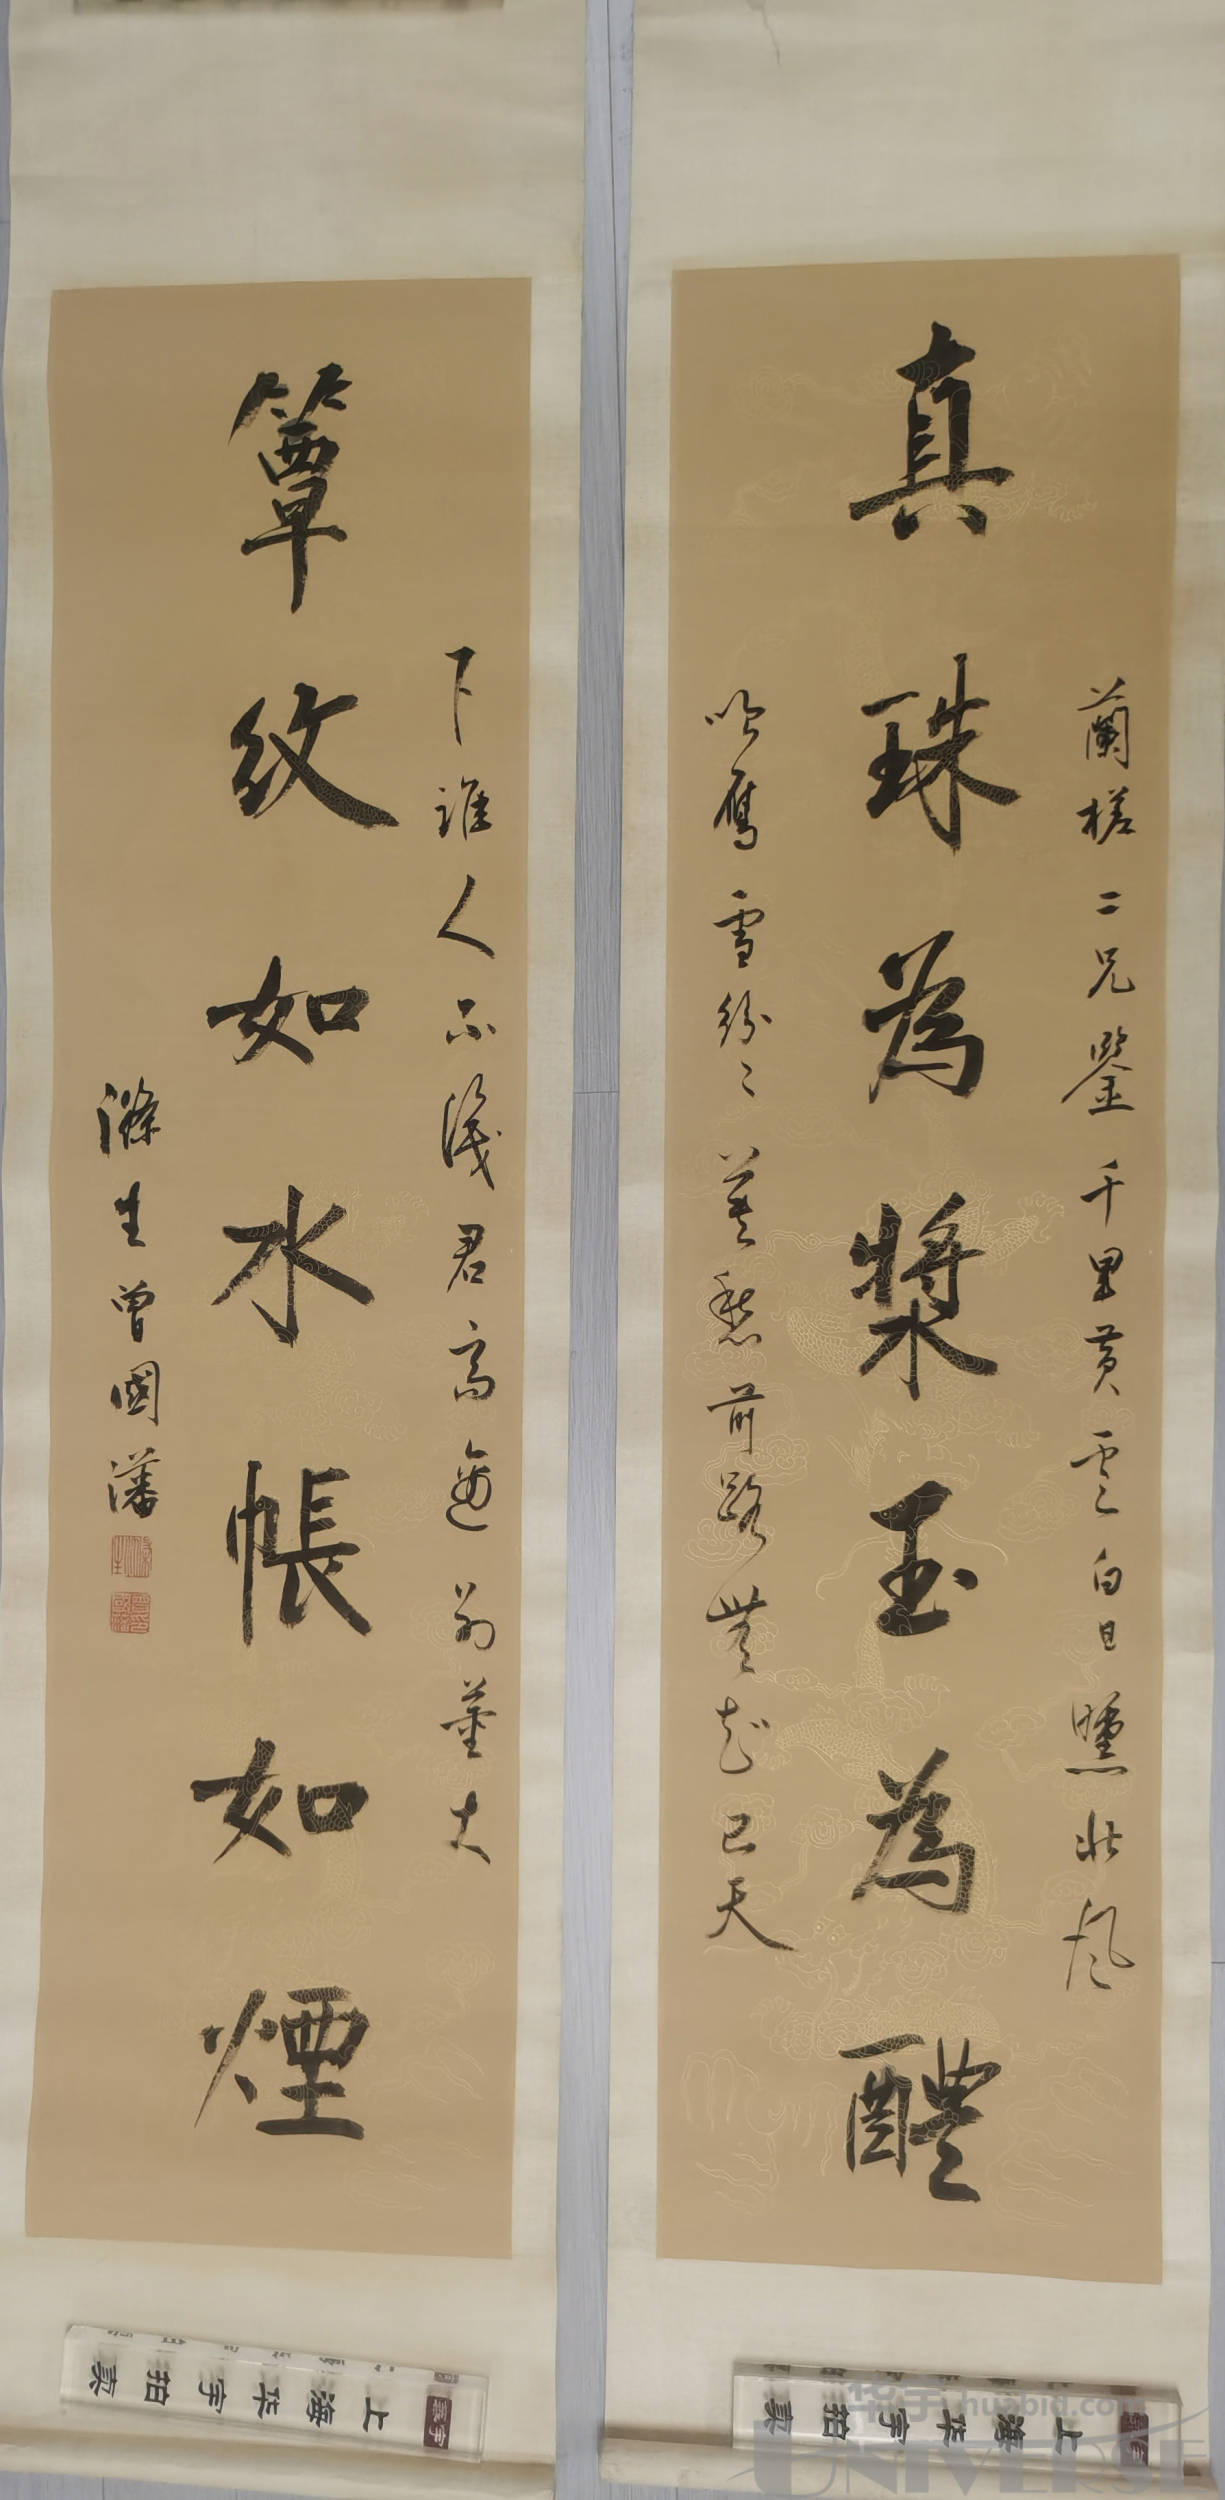 蘭槎二兄鑒 千里黃雲白日曛北風
真珠為漿玉為醴
吹鴈雪紛〻莫愁前路無知己天
下誰人不識君 高適別董大
簟紋如水帳如煙
滌生曾國藩
上海华宇拍卖
上海华宇拍卖
华宇 huabid.com
UNIVERSE